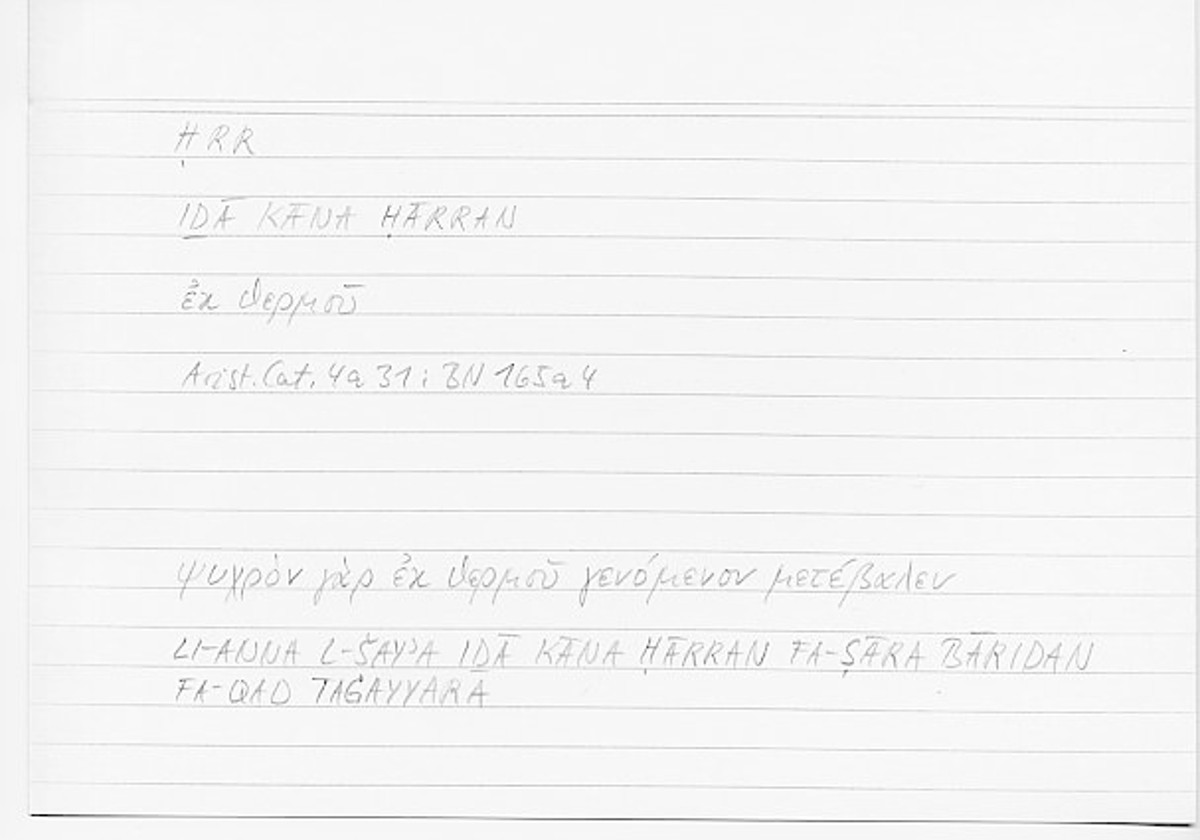 ḤRR
IḎĀ KĀNA ḤĀRRAN
ἐκ θερμοῦ
Arist. Cat. 4a 31; BN 165a 4
ψυχρὸν γὰρ ἐκ θερμοῦ γενόμενον μετέβαλεν
LI-ANNA L-ŠAYʾA IḎĀ KĀNA ḤĀRRAN FA-ṢĀRA BĀRIDAN
FA-QAD TAĠAYYARA